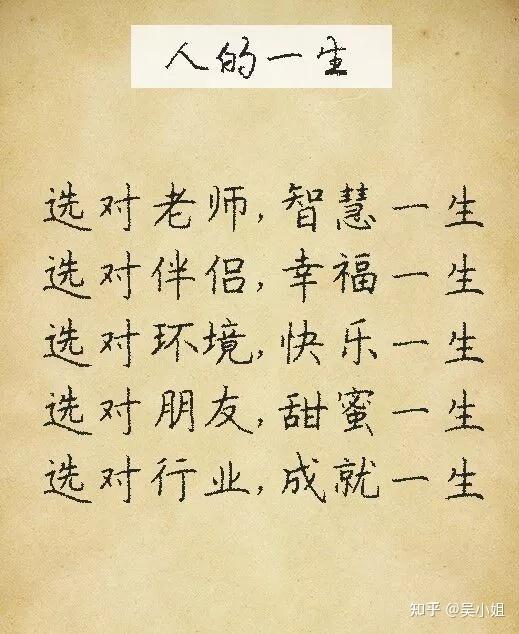 人的一生
选对老师,智慧一生
选对伴侣,幸福一生
选对环境,快乐一生
选对朋友,甜蜜一生
选对行业,成就一生
知乎 @吴小姐